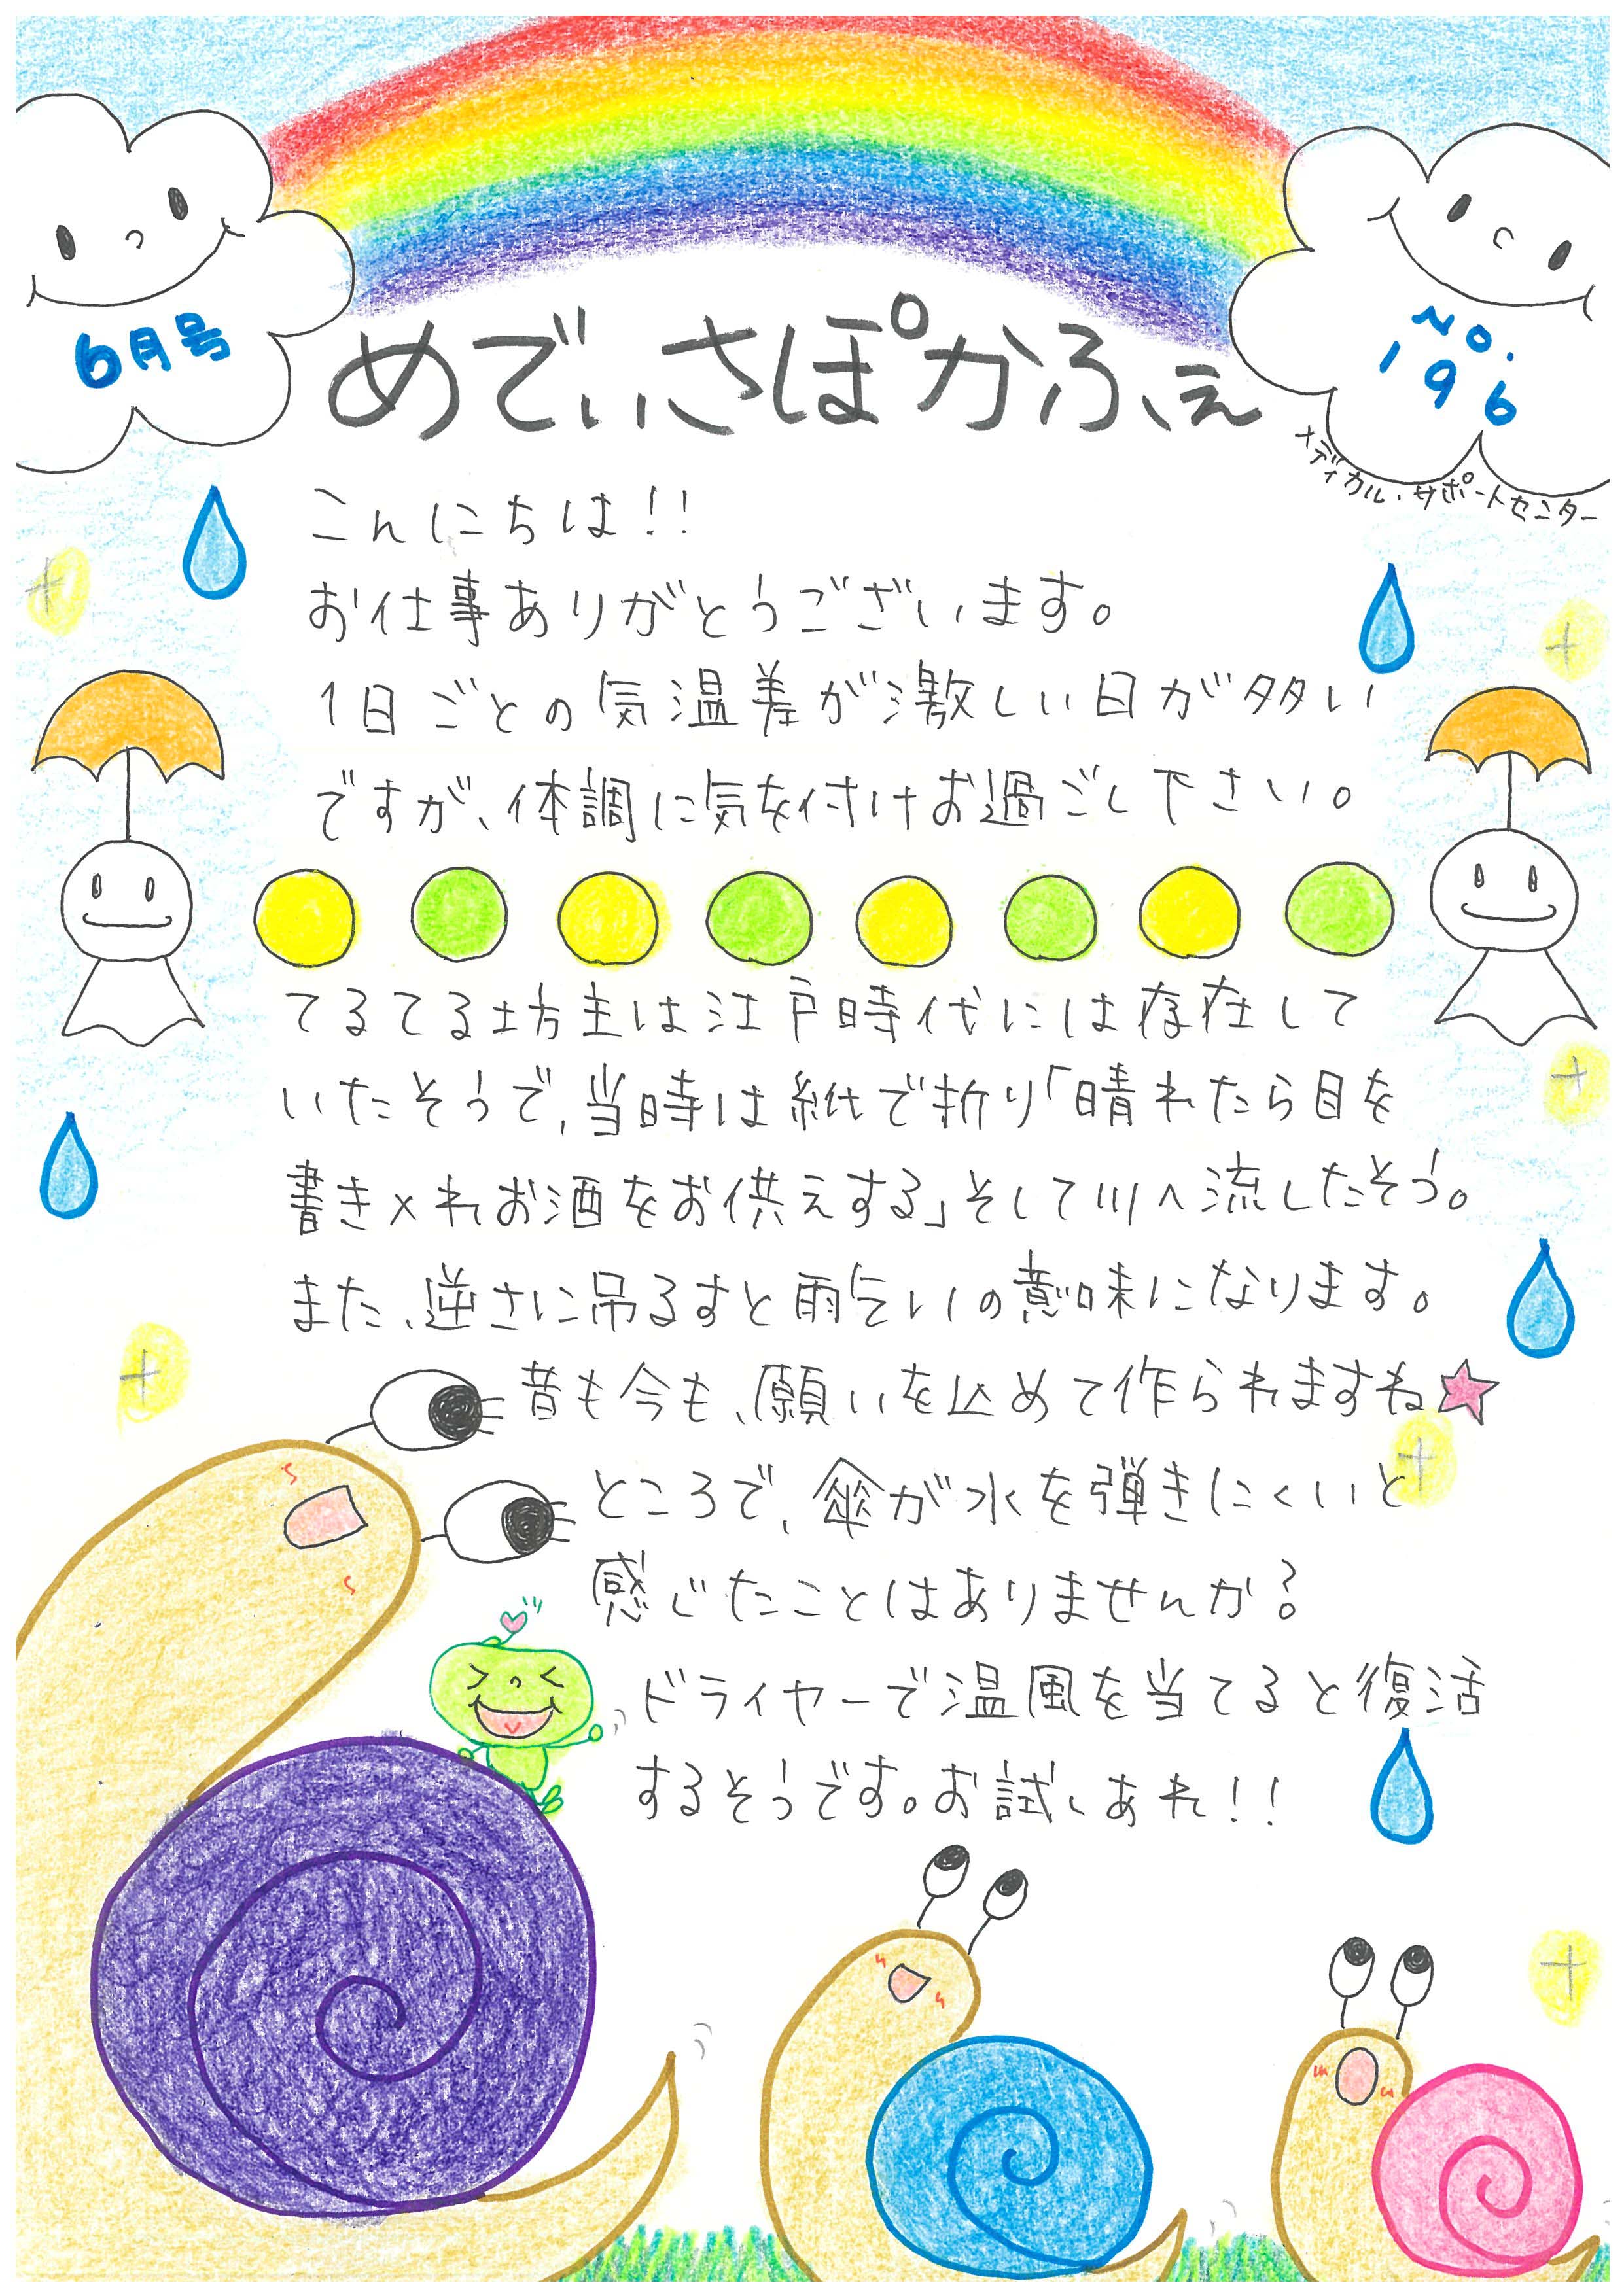 6月号
めでぃさぽかふぇ
No.
196
メディカル・サポートセンター
こんにちは!!
お仕事ありがとうございます。
1日ごとの気温差が激しい日が多い
ですが、体調に気を付けお過ごし下さい。
てるてる坊主は江戸時代には存在して
いたそうで、当時は紙で折り「晴れたら目を
書き入れお酒をお供えする」そして川へ流したそう。
また、逆さに吊るすと雨乞いの意味になります。
昔も今も、願いを込めて作られますね★
ところで、傘が水を弾きにくいと
感じたことはありませんか?
ドライヤーで温風を当てると復活
するそうです。お試しあれ!!